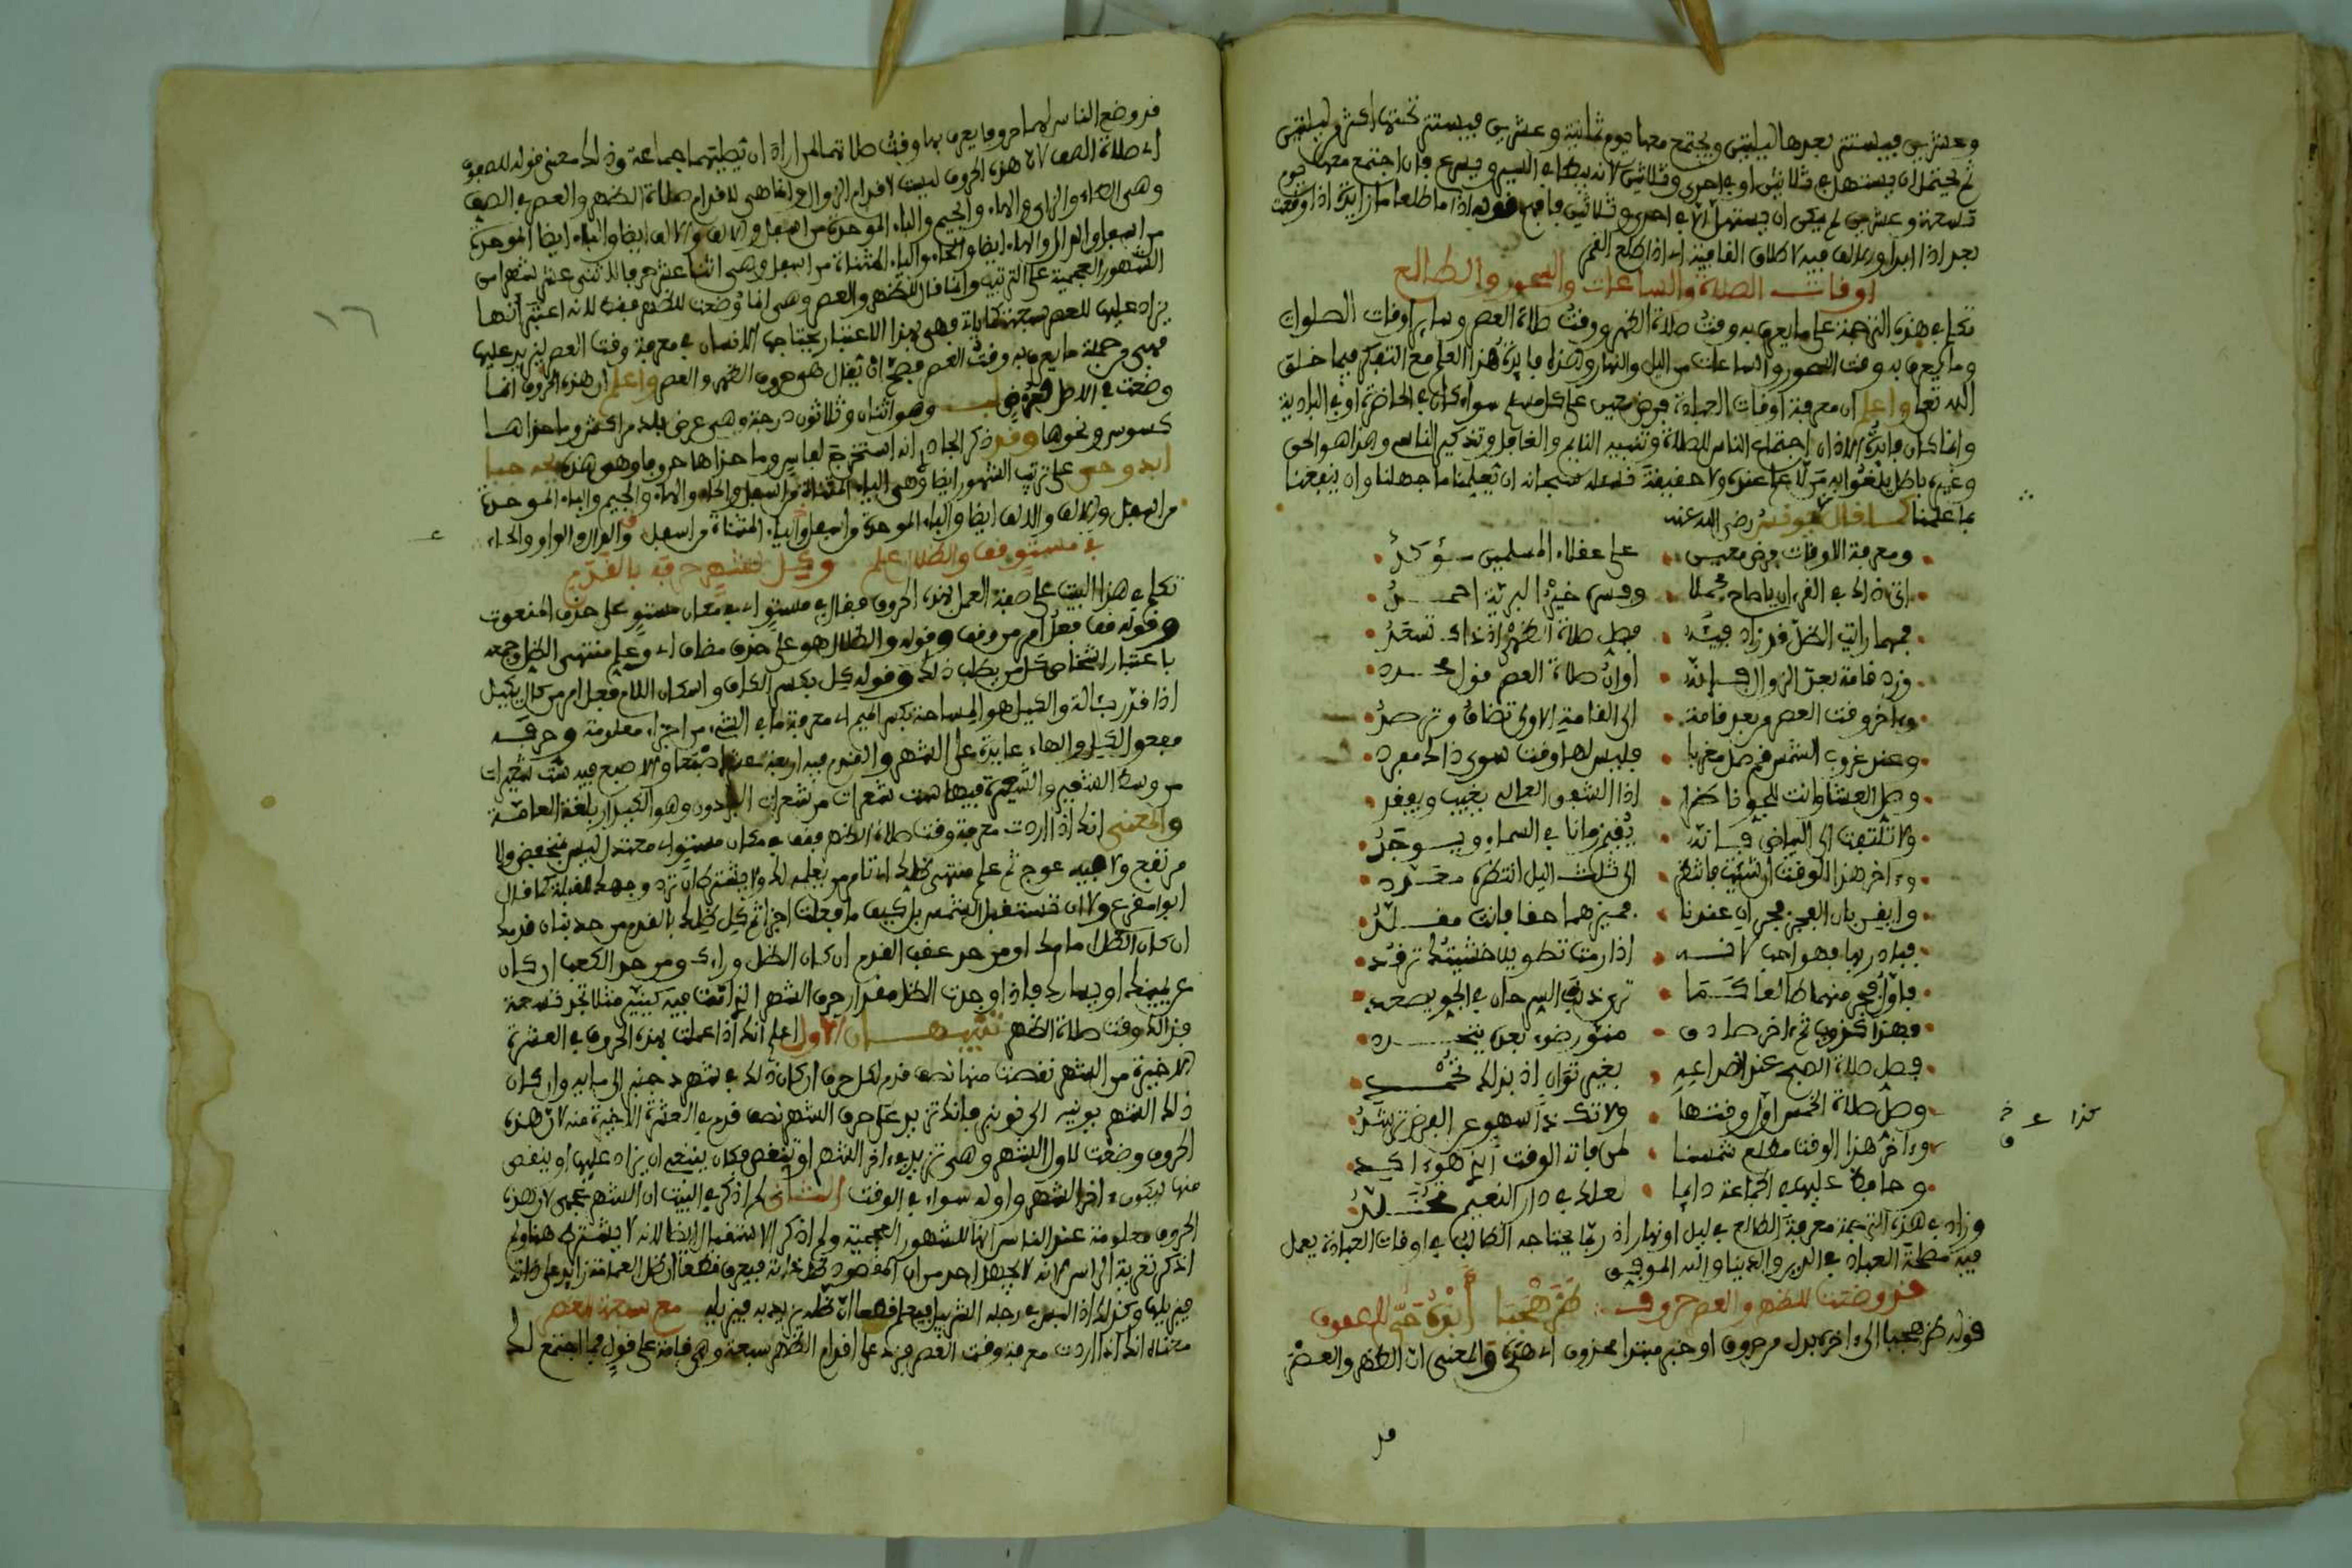 وعشرين فيستتر بعدها ليلتين ويجتمع معها يوم ثمانية وعشرين فيستتر تحتها اكثر من ليلتين
ثم يحتمل ان يستهل في ثلاثين او في احدى وثلاثين لانه يبطئ في السير ويسرع فان اجتمع معها يوم
تسعة وعشرين لم يكن ان يستهل الا في احدى وثلاثين فافهم قوله اذا ما طلعا ما زايدة اذا وقعت
بعد اذا ابدا والالف فيه لاطلاق القافية اي اذا طلع القمر
اوقات الصلاة والساعات والسحور والطالع
تكلم في هذه الترجمة على ما يعرف به وقت صلاة الظهر ووقت صلاة العصر وساير اوقات الصلوات
وما يعرف به وقت السحور والساعات من الليل والنهار وهذه فايدة هذا العلم مع التفكر فيما خلق
الله تعالى واعلم ان معرفة اوقات العبادة فرض معين على كل مسلم سواء كان في الحاضرة او في البادية
وانما كان فايدة الاذان اجتماع الناس للصلاة وتنبيه النايم والغافل وتذكير الناسي وهذا هو الحق
وغيره باطل عنده ولا حقيقة فنسئله سبحانه ان يعلمنا ما جهلنا وان ينفعنا
بما علمنا كما قال رضي الله عنه
ومعرفة الاوقات فرض معين على عقلاء المسلمين مؤكد
اتى ذاك في القرءان يا صاح مجملا وفسره خير البرية احمد
فمهما رايت الظل قد زاد فيئه فصل صلاة الظهر اذ ذاك تسعد
وزد قامة بعد الزوال فانه اوان صلاة العصر قول محدد
وءاخر وقت العصر بعد قامة الى القامة الاولى تضاف وترصد
وعند غروب الشمس قم صل مغربا فليس لها وقت سوى ذاك مفرد
وصل العشا وانت للجو ناظر اذا الشفق العالي يغيب ويفقد
ولا تلتفت الى البياض فانه يقيم زمانا في السماء ويوجد
وءاخر هذا الوقت ان شئت فانتظر الى ثلث الليل انتظر محدد
وايقن بان الفجر فجران عندنا فميزهما حقا فانت مقلد
فاول فجر منهما طالعا كما ترى ذنب السرحان في الجو يصعد
فهذا كذوب ثم ءاخر صادق منور ضوء بعده يتجدد
فصل صلاة الصبح عند انصداعه بغير توان اذ بذلك تحمد
وصل صلاة الخمس اول وقتها ولا تك ذا سهو عن الفرض ترشد
وءاخر هذا الوقت مطلع شمسنا
وحافظ عليها في الجماعة دايما لعلك في دار النعيم تخلد
وزاد في هذه الترجمة معرفة الطالع في ليل او نهار اذ ربما يحتاجه الطالب في اوقات العبادة يعمل
فيه مصلحة العباد في الدين والدنيا والله الموفق
قد وضعت للظهر والعصر حروف
قوله الى ءاخره بدل من حروف او خبر مبتدا محذوف اي هي والمعنى ان الظهر والعصر
قد
كذا
قد وضع الناس لهما حروفا يعرف بها وقت صلاتهما لمن اراد ان يصليهما جماعة وذلك معنى قوله للصفوف
اي صلاة الصف لان هذه الحروف ليست لاقدام الزوال وانما هي لاقدام صلاة الظهر والعصر في الصف
وهي الطاء والزاي والهاء والجيم والباء الموحدة من اسفل والالف والالف ايضا والباء ايضا الموحدة
من اسفل والدال والهاء ايضا والحاء والياء المثناة من اسفل وهي اثنا عشر حرفا لاثني عشر شهرا من
الشهور العجمية على الترتيب وانما قال للظهر والعصر وهي انما وضعت للظهر فقط لانه اعتبر انها
يزاد عليها للعصر سبعة فهي بهذا الاعتبار يحتاجها الانسان في معرفة وقت العصر ليزيد عليها
فهي من جملة ما يعرف به وقت العصر فصح ان يقال هو حروف الظهر والعصر واعلم ان هذه الحروف انما
وضعت في الاصل لعرض وهو اثنان وثلاثون درجة وهي عرض بلد مراكش وما حذاها
كسوس ونحوها وقد ذكر الجادري انه استخرج لفاس وما حذاها حروفا وهي هذه
على ترتيب الشهور ايضا وهي الياء المثناة من اسفل والحاء والهاء والجيم والباء الموحدة
من اسفل والالف والالف ايضا والباء الموحدة من اسفل والياء المثناة من اسفل والدال والواو والحاء
في مستو قف والظلال علم وكل لشهر حرفه بالقدم
تكلم في هذا البيت على صفة العمل بهذه الحروف فقال في مستو اي في مكان مستو على حذف المنعوت
وقوله قف فعل امر من وقف وقوله والظلال هو على حذف مضاف اي وعلم منتهى الظل وجمعه
باعتبار اشخاص كل من يطلب ذلك وقوله كل بكسر الكاف واسكان اللام فعل امر من كال يكيل
اذا قدر بآلة والكيل هو المساحة بكسر الميم اي معرفة ما في الشيء من اجزاء معلومة وحرفه
مفعول الكيل والهاء عايدة على الشهر والقدم فيه اصبعا والاصبع فيه ست شعيرات
من وسط الشعير والشعيرة فيها ست شعرات من شعرات البرذون وهو الكيدار بلغة العامة
والمعنى انك اذا اردت معرفة وقت صلاة الظهر فقف في مكان مستو اي معتدل ليس منخفض ولا
مرتفع ولا فيه عوج ثم علم منتهى ظلك اي تامر من يعلمه لك ولا يشترط ان ترد وجهك للقبلة كما قال
ابو مقرع ولا ان تستقبل الشمس بل كيف ما فعلت اجزا ثم كل ظلك بالقدم من حد بنان قدمك
ان كان الظل امامك او من حد عقب القدم ان كان الظل وراءك ومن حد الكعب ان كان
عن يمينك او يسارك فاذا وجدت الظل مقدار حرف الشهر الذي انت فيه كينير مثلا تجد تسعة
فذالك وقت صلاة الظهر تنبيهان الاول اعلم انك اذا عملت بهذه الحروف في العشرة
الاخيرة من الشهر نقصت منها نصف قدم لكل حرف ان كان ذلك في شهر دجنبر الى مايه وان كان
ذلك الشهر يونيه الى نونبر فانك تزيد على حرف الشهر نصف قدم في العشرة الاخيرة منه لان هذه
الحروف وضعت لاول الشهر وهي تزيد في ءاخر الشهر او تنقص فكان ينبغي ان يزاد عليها او ينقص
منها ليكون ءاخر الشهر واوله سواء في الوقت الثاني لم اذكر في البيت ان الشهر عجمي لان هذه
الحروف معلومة عند الناس انها للشهور العجمية ولم اذكر الاستقبال ايضا لانه لا يشترط هنا ولم
اذكر تعرية الراس لانه لا يجهل احد من ان المقصود ظل ذاته فيعرف قطعا ان ظل العمامة زايد على ذاته
فيزيلها وكذلك اذا لبس في رجله الشربيل فيعلم قطعا ان ظله يزيد به فيزيله مع سبعة للعصر
معناه انك اذا اردت معرفة وقت العصر فزد على اقدام الظهر سبعة وهي قامة على قول فما اجتمع لك
١٦